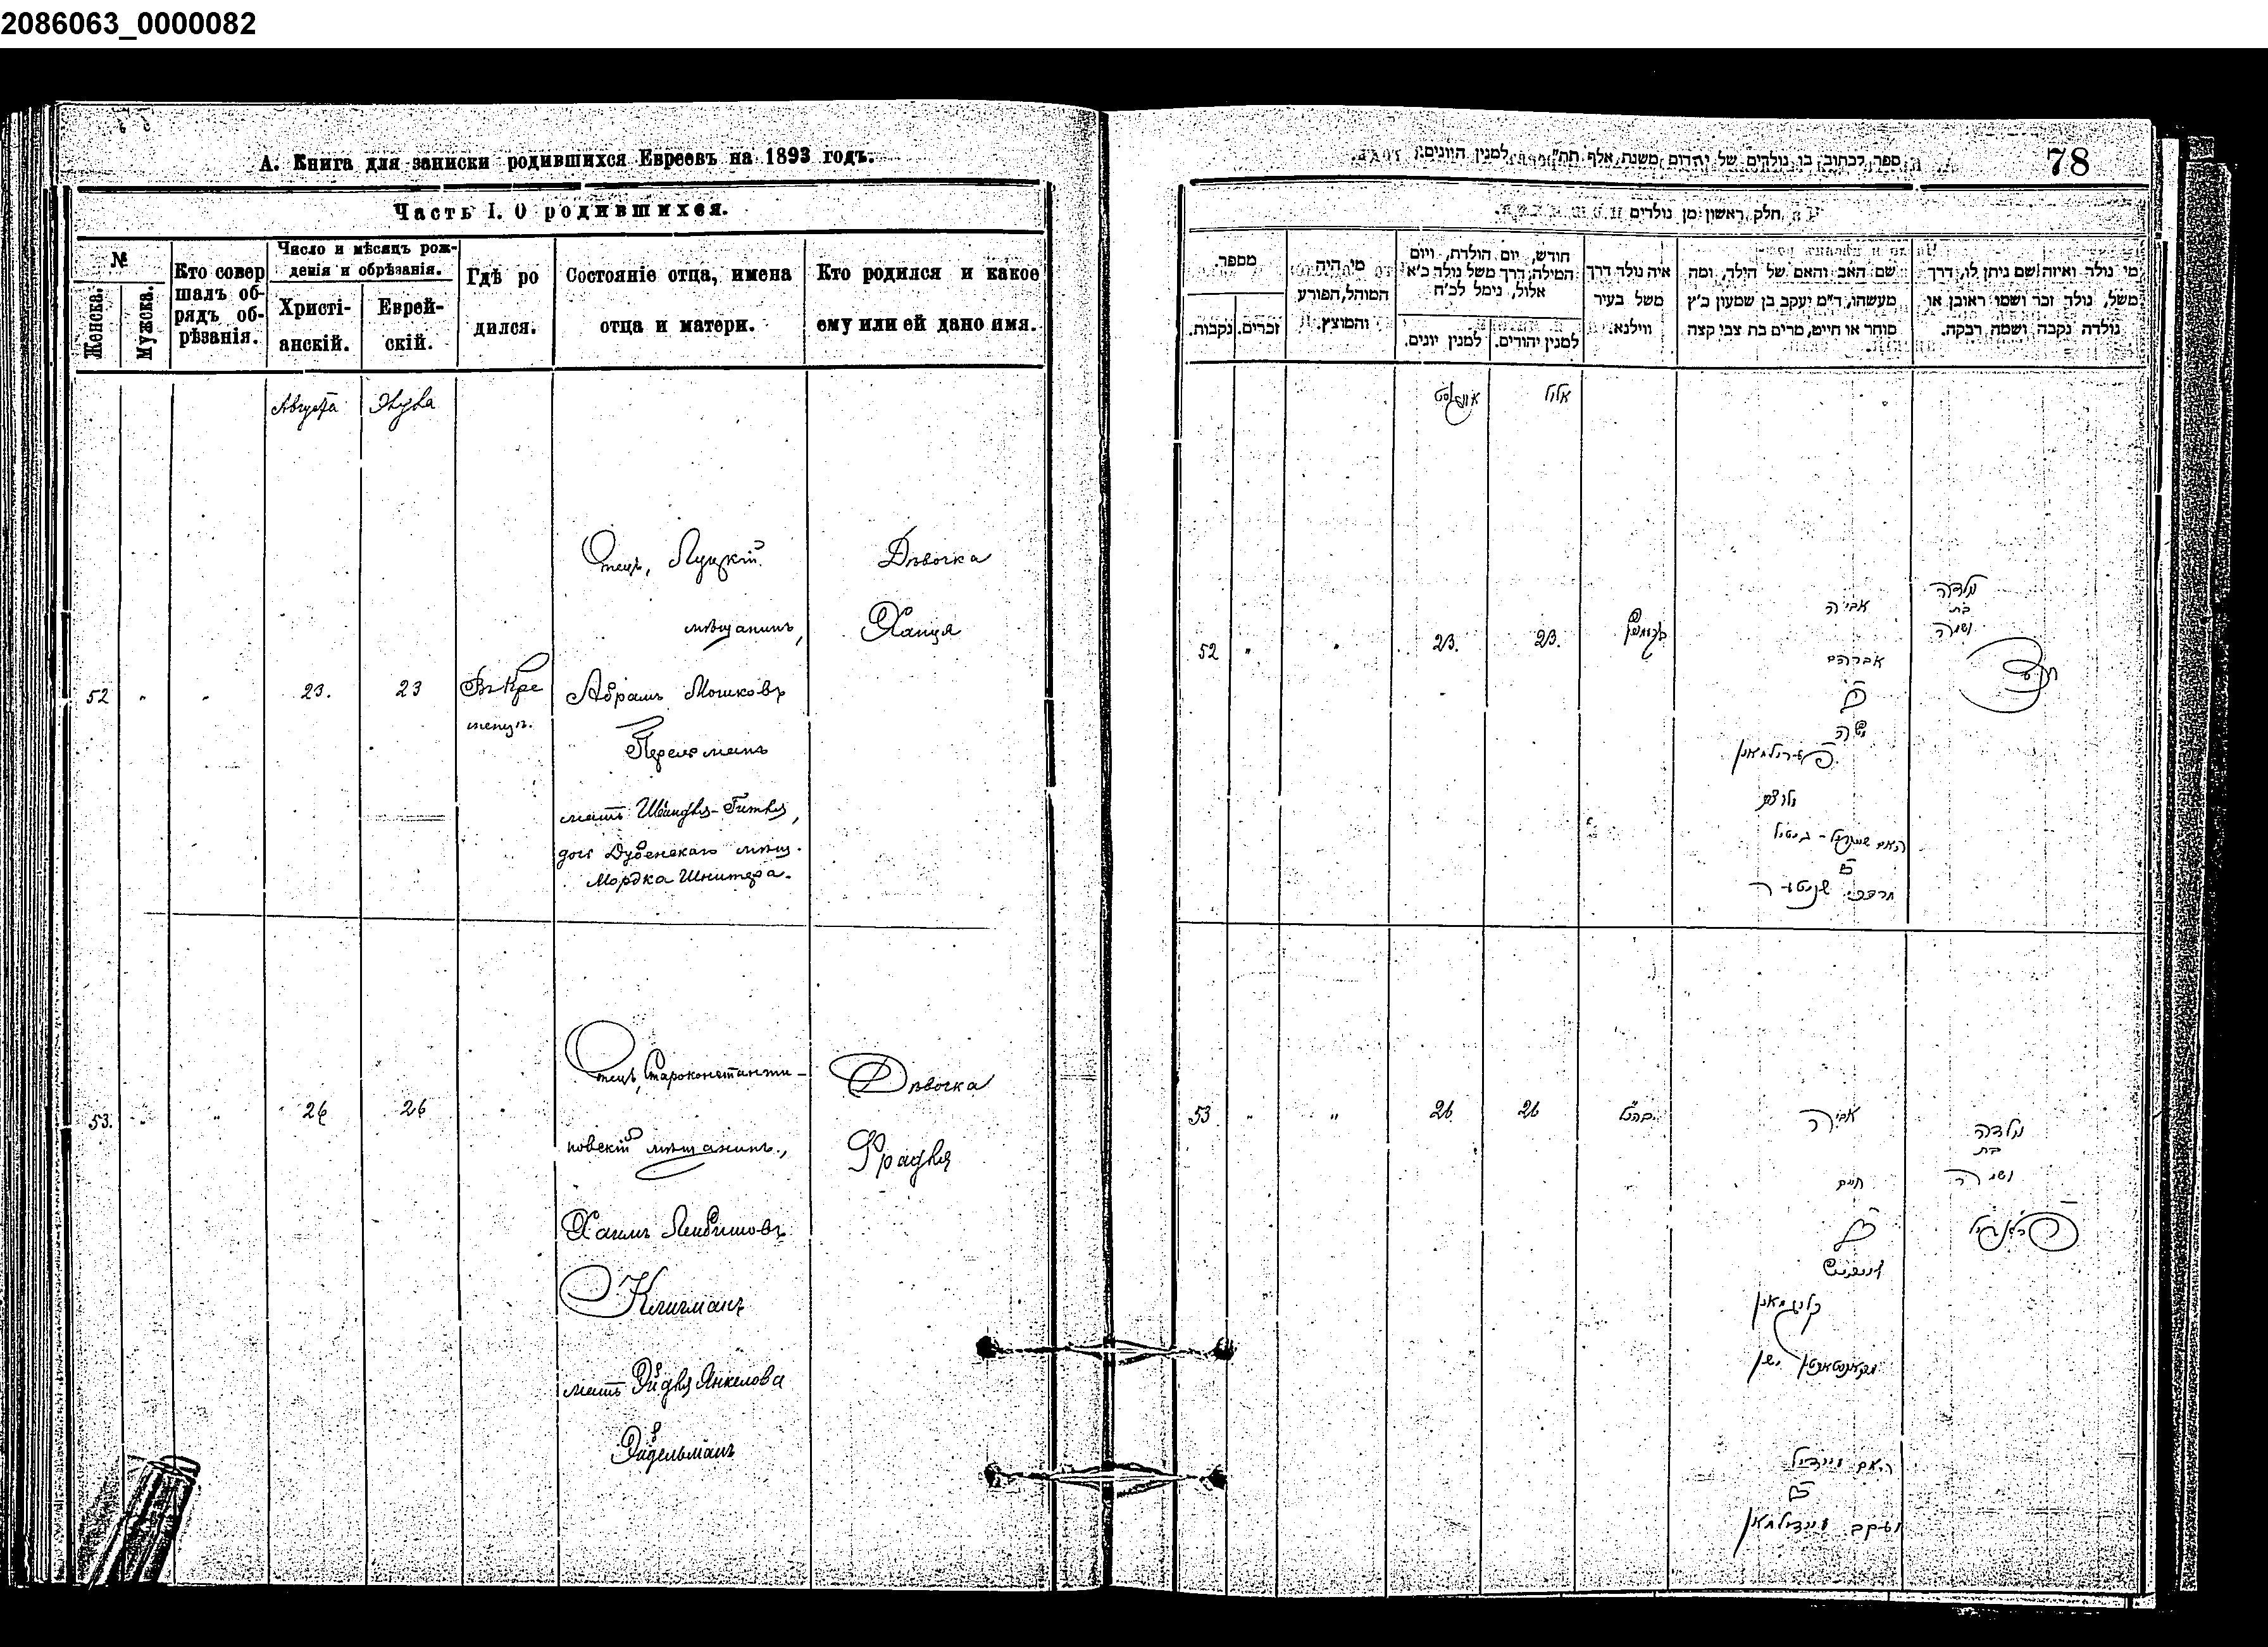 2086063_0000082
А. Книга для записки родившихся Евреевъ на 1893 годъ.
Часть I. О родившихся.
№
Женска.
Мужска.
Кто совер
шалъ об-
рядъ об-
рѣзанія.
Число и мѣсяцъ рож-
денія и обрѣзанія.
Христі-
анскій.
Еврей-
скій.
Гдѣ ро
дился.
Состояніе отца, имена
отца и матери.
Кто родился и какое
ему или ей дано имя.
Августа
Элула
52
23.
23
Въ Кре
менцѣ.
Отецъ, Луцкій
мѣщанинъ,
Абрамъ Мошковъ
Перельманъ
мать Шейндля-Гитля,
доч Дубенскаго мѣщ.
Мордка Шнитера.
Дѣвочка
Ханця
53.
26
26
Отецъ, Староконстанти-
новскій мѣщанинъ.,
Хаимъ Лейбишовъ
Клигманъ
мать Эйдля Янкелова
Эйдельманъ
Дѣвочка
Фрадля
78
חלק ראשון מן נולדים
מספר.
נקבות.
זכרים.
מי היה
המוהל, הפורע
והמוצץ.
חודש, יום הולדת, ויום
המילה, דרך משל נולד כ״א
אלול, נימל לכ״ח
למנין יונים.
למנין יהודים.
איה נולד דרך
משל בעיר
ווילנא.
שם האב והאם של הילד, ומה
מעשהו, ד״מ יעקב בן שמעון כ״ץ
סוחר או חייט, מרים בת צבי קצה
מי נולד ואיזה שם ניתן לו, דרך
משל, נולד זכר ושמו ראובן או
נולדה נקבה ושמה רבקה.
אויגוסט
אלול
52
23.
23.
אביה
אברהם
ב״ר
משה
פערילמאן
האם שיינדיל - גיטיל
ב״ר
מרדכי שניטער
נולדה
בת
ושמה
53
26
26
אביה
חיים
ב״ר
קליגמאן
האם איידיל
ב״ר
יעקב איידילמאן
נולדה
בת
ושמה
פראדיל